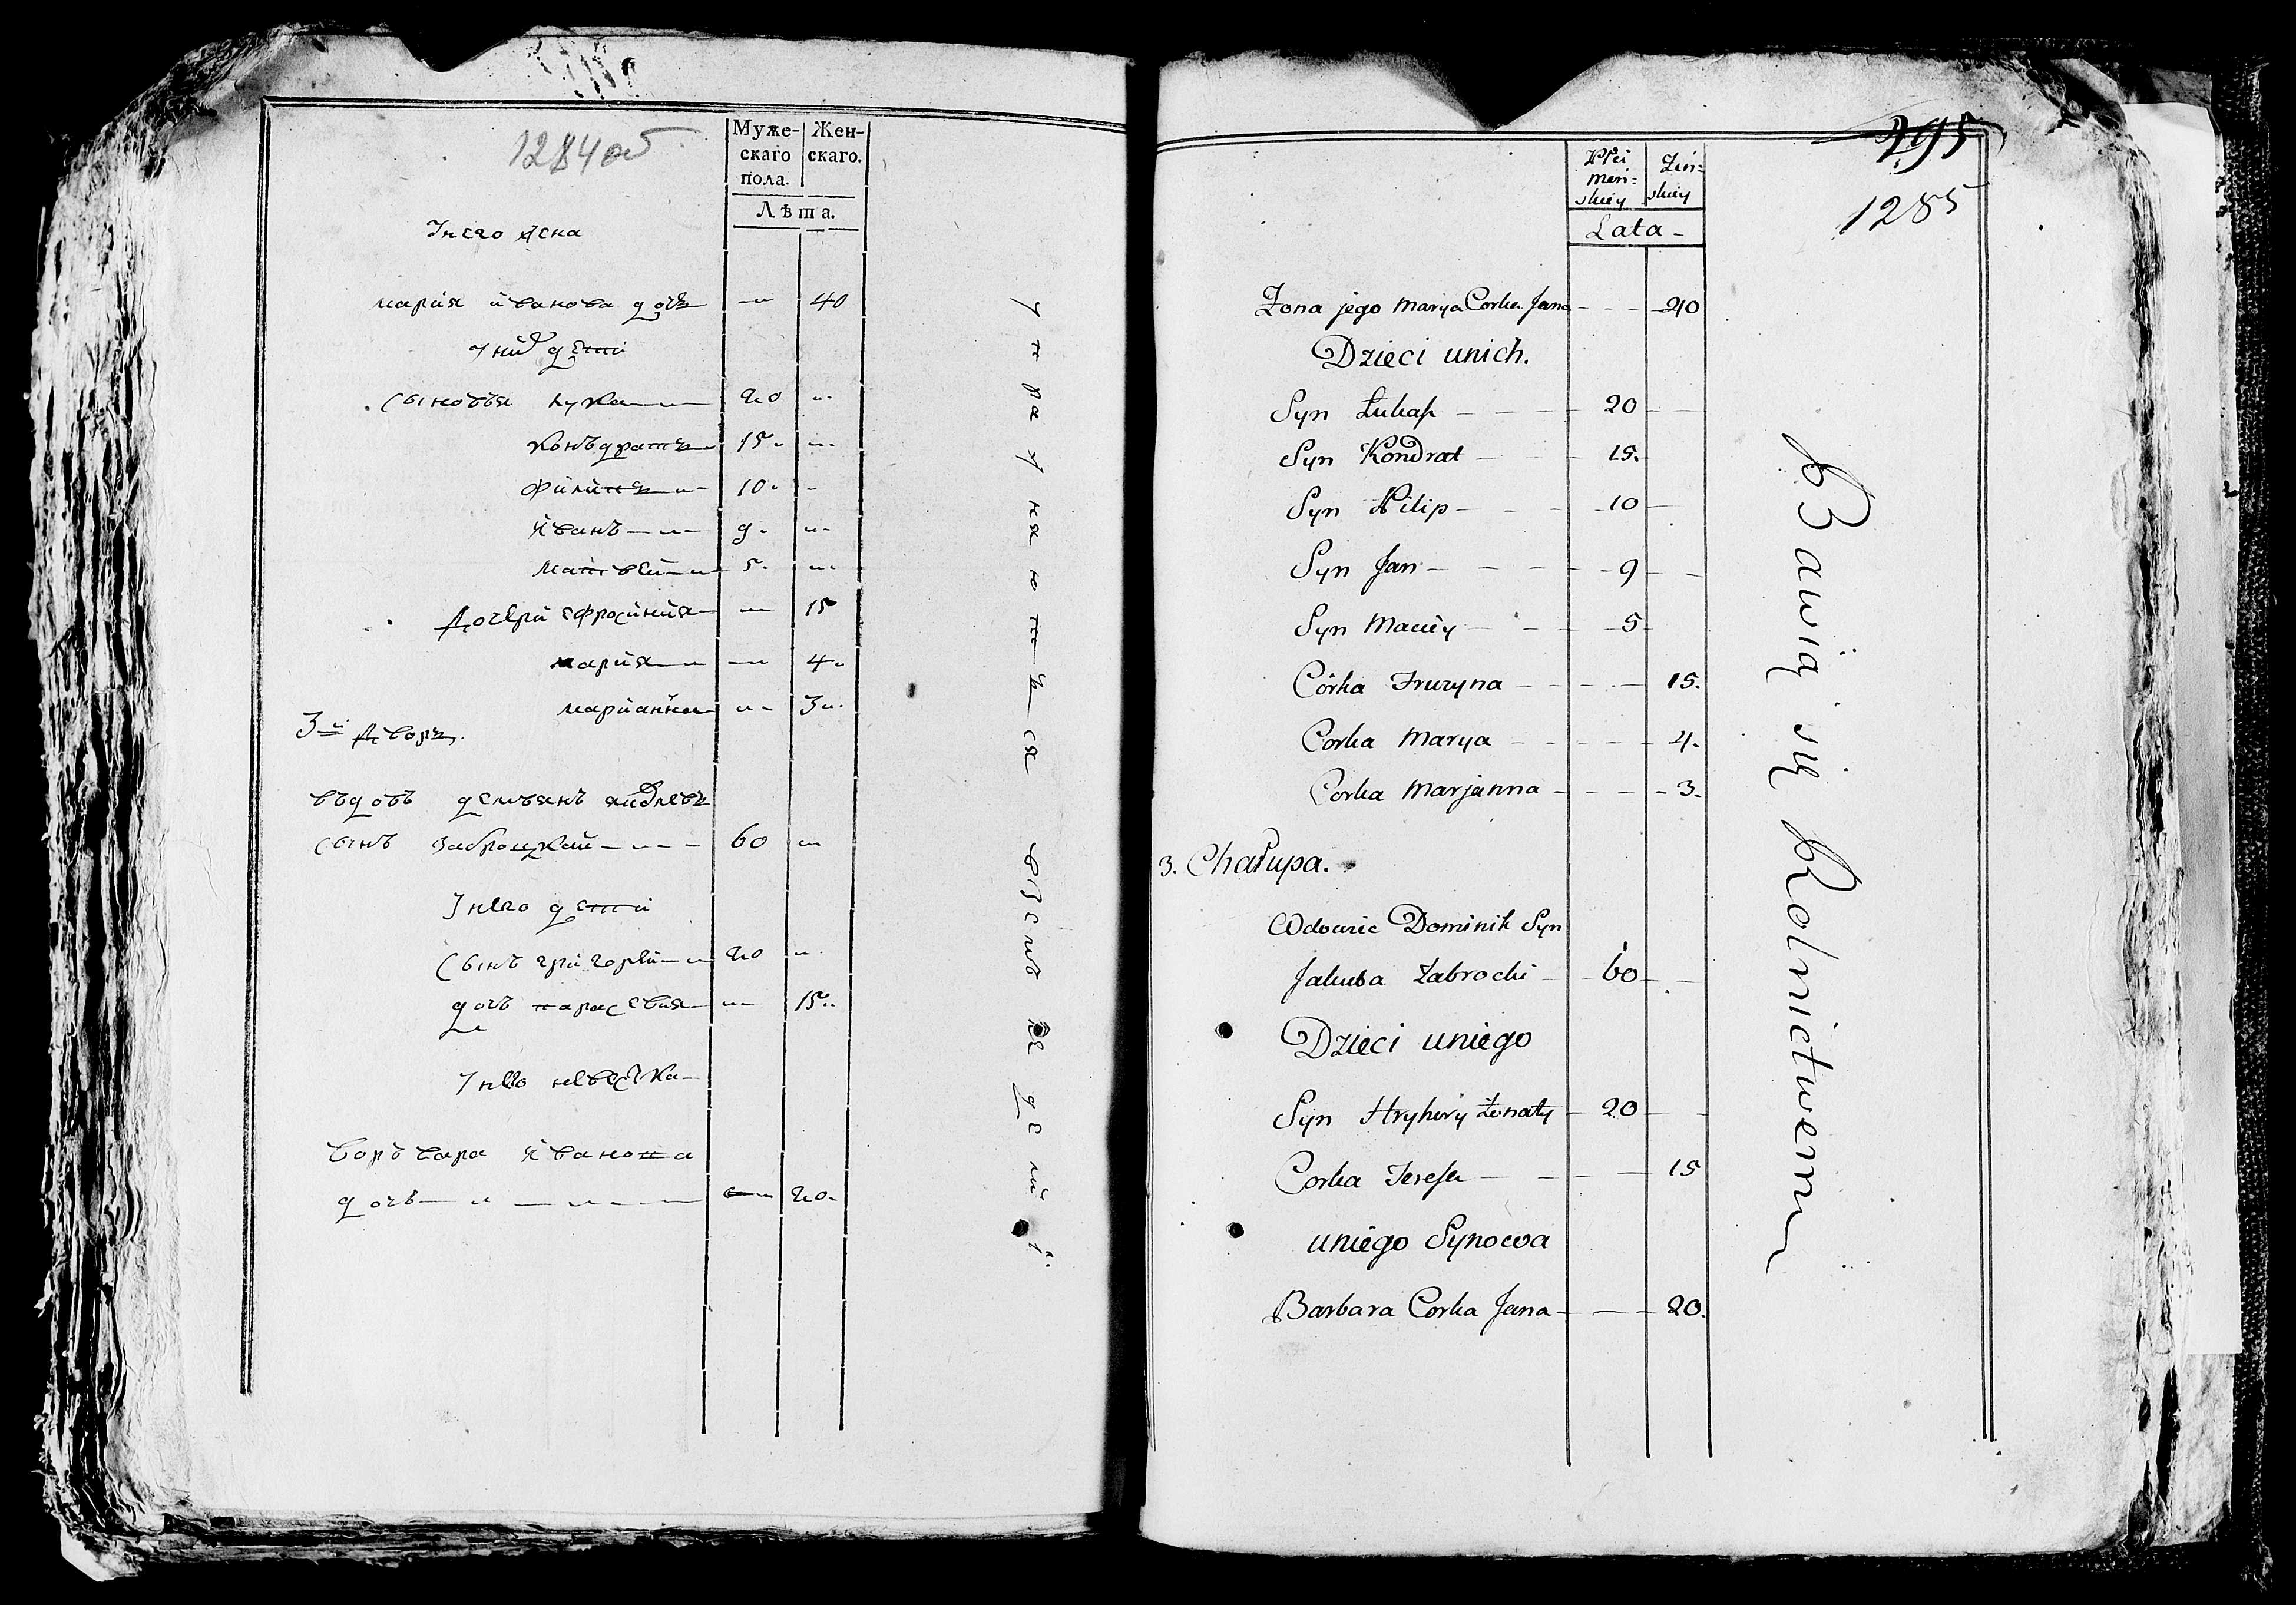 1284 об
Муже-
скаго
пола.
Жен-
скаго.
Лѣта.
У него жена
мария иванова дочь — 40
У них дети
Сыновья лука 20
конъдратъ 15
филипъ 10
иванъ 9
матвей 5
Дочери ефросиния — 15
мария — 4
марианна — 3
3й Дворъ.
въдовъ демьянъ
сынъ заброцкой 60
У него дети
Сынъ григорей 20
дочь парасевия — 15
У него невеска
Варъвара иванова
дочь — 20
упражняютъся въ земледелии.
295
1285
Płci
męs-
skiey
Żeń-
skiey
Lata
Żona jego Marya Corka Jana 40
Dzieci unich.
Syn Łukasz 20
Syn Kondrat 15.
Syn Filip 10
Syn Jan 9
Syn Maciey 5
Córka Fruzyna 15.
Corka Marya 4.
Corka Marjanna 3.
3. Chałupa.
Wdowiec Dominik Syn
Jakuba Zabrocki 60
Dzieci uniego
Syn Hryhory żonaty 20
Corka Teresa 15
uniego Synowa
Barbara Corka Jana 20.
Bawią się Rolnictwem